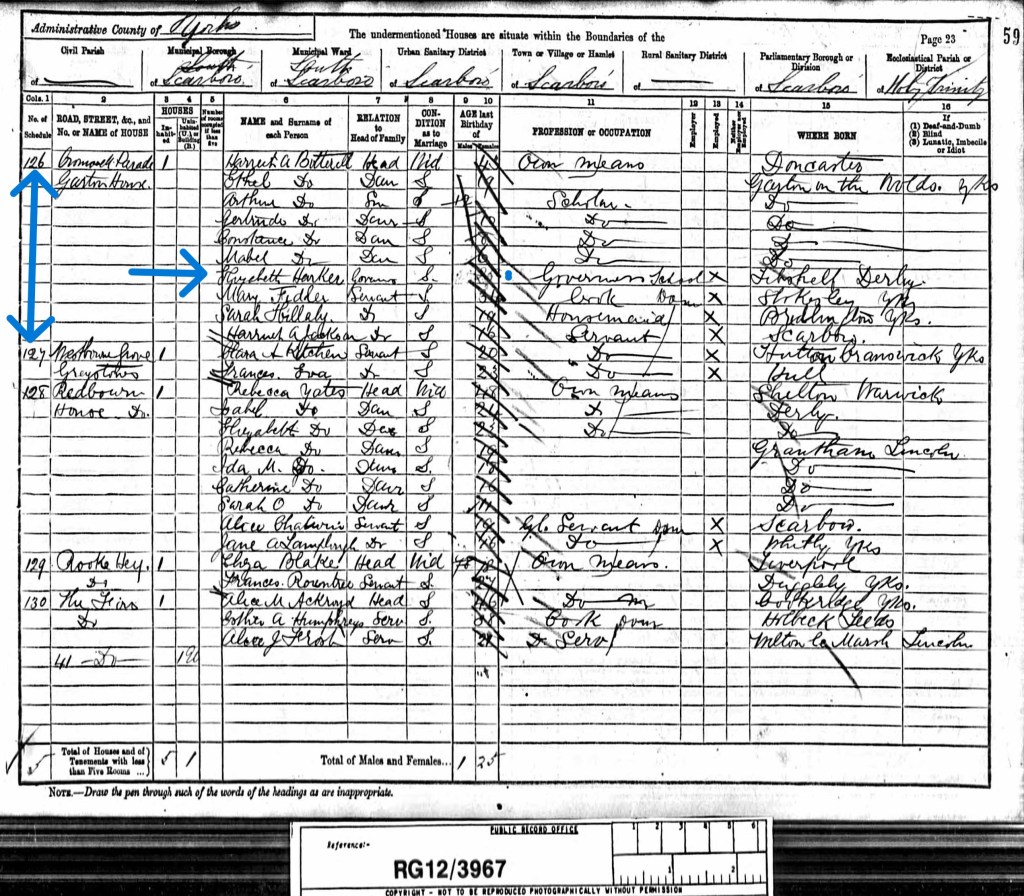 Administrative County of Yorks
The undermentioned Houses are situate within the Boundaries of the
Page 23
59
Civil Parish Municipal Borough Municipal Ward Urban Sanitary District Town or Village or Hamlet Rural Sanitary District Parliamentary Borough or Division Ecclesiastical Parish or District
of of South Scarboro' of South Scarboro of Scarboro' of Scarboro' of of Scarboro' of Holy Trinity
Cols. 1 2 3 4 5 6 7 8 9 10 11 12 13 14 15 16
No. of Schedule ROAD, STREET, &c., and No. or NAME of HOUSE HOUSES Inhabited Uninhabited (U.), or Building (B.) Number of rooms occupied if less than five NAME and Surname of each Person RELATION to Head of Family CONDITION as to Marriage AGE last Birthday of Males Females PROFESSION or OCCUPATION Employer Employed Neither Employer nor Employed WHERE BORN If (1) Deaf-and-Dumb (2) Blind (3) Lunatic, Imbecile or Idiot
126 Cromwell Parade 1 Harriet A Botterell Head Wid Own Means Doncaster
Garton House. Ethel Do Daur S on the Wolds. Yks
Arthur Do Son S 12 Scholar Do
Gertrude Do Daur S Do Do
Constance Do Daur S Do Do
Mabel Do Daur S Do Do
Elizabeth Harker Governs S. Governess School X Derby.
Mary Fidder Servant S Cook Dom X Stokesley Yks
Sarah Hillaby Do S 19 Housemaid X Bridlington Yks.
Harriet A Jackson Do S 16 Servant X Scarboro.
127 Westbourne Grove 1 Clara A Kitchen Servant S 20 Do X Hutton Cranswick Yks
Greystones Frances Eva Do S 23 Do X Hull
128 Redbourn 1 Rebecca Yates Head Wid Own Means Warwick
House Do. Isabel Do Daur S Do Derby.
Elizabeth Do Daur S Do Do
Rebecca Do Daur S 19 Grantham Lincoln
Ida M. Do. Daur S. Do
Catherine Do Daur S Do
Sarah O Do Daur S Do
Alice S Servant S 19 Servant Dom X Scarboro.
Jane A Lamplugh Do S Do X Whitby Yks
129 Rooke Hey. 1 Eliza Blake Head Wid 48 Own Means. Liverpool
Do Frances Rountree Servant S. Yks.
130 The Firs 1 Alice M Ackroyd Head S Do Cookridge Yks.
Do Esther A Humphreys Serv S. Cook Dom Holbeck Leeds
Alice J Frost Serv S. Do Serv Marsh Lincoln
41 Do
5 Total of Houses and of Tenements with less than Five Rooms ... 5 1 Total of Males and Females... 1 25
NOTE.—Draw the pen through such of the words of the headings as are inappropriate.
PUBLIC RECORD OFFICE
Reference:-
1 2 3 4 5 6
RG12/3967
1 2
COPYRIGHT - NOT TO BE REPRODUCED PHOTOGRAPHICALLY WITHOUT PERMISSION